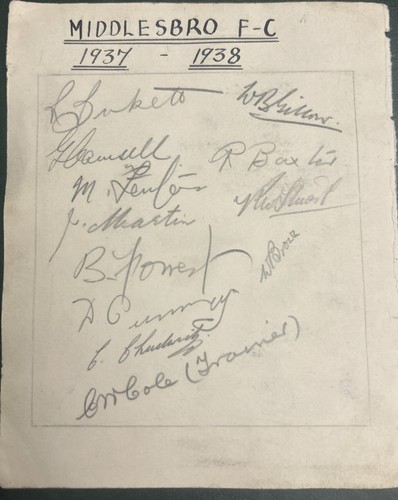 MIDDLESBRO F-C
1937 - 1938
R Birkett
W B Gillow.
G Camsell
R Baxter
M. Fenton
R W Stuart
J. Martin
B. Forrest
D Cumming
C. Chadwick
C W Cole (Trainer)